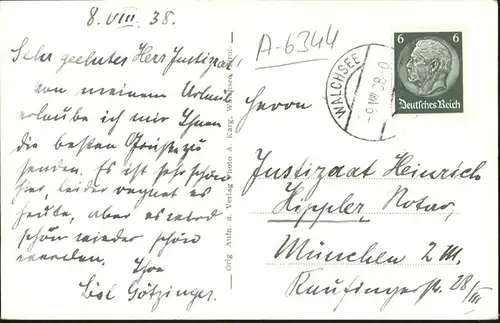 8. VIII. 38.
A-6344
Sehr geehrter Herr Justizrat!
von meinem Urlaub
erlaube ich mir Ihnen
die besten Grüße zu
senden. Es ist sehr schön
hier, leider regnet es
heute, aber es wird
schon wieder schön
werden. Ihre
Lisl Götzinger.
Orig. Aufn. u. Verlag Photo A. Karg,
WALCHSEE
6 6
Deutsches Reich
Herrn
Justizrat Heinrich
Hippler, Notar,
München 2 M.
Kaufingerstr. 28/III